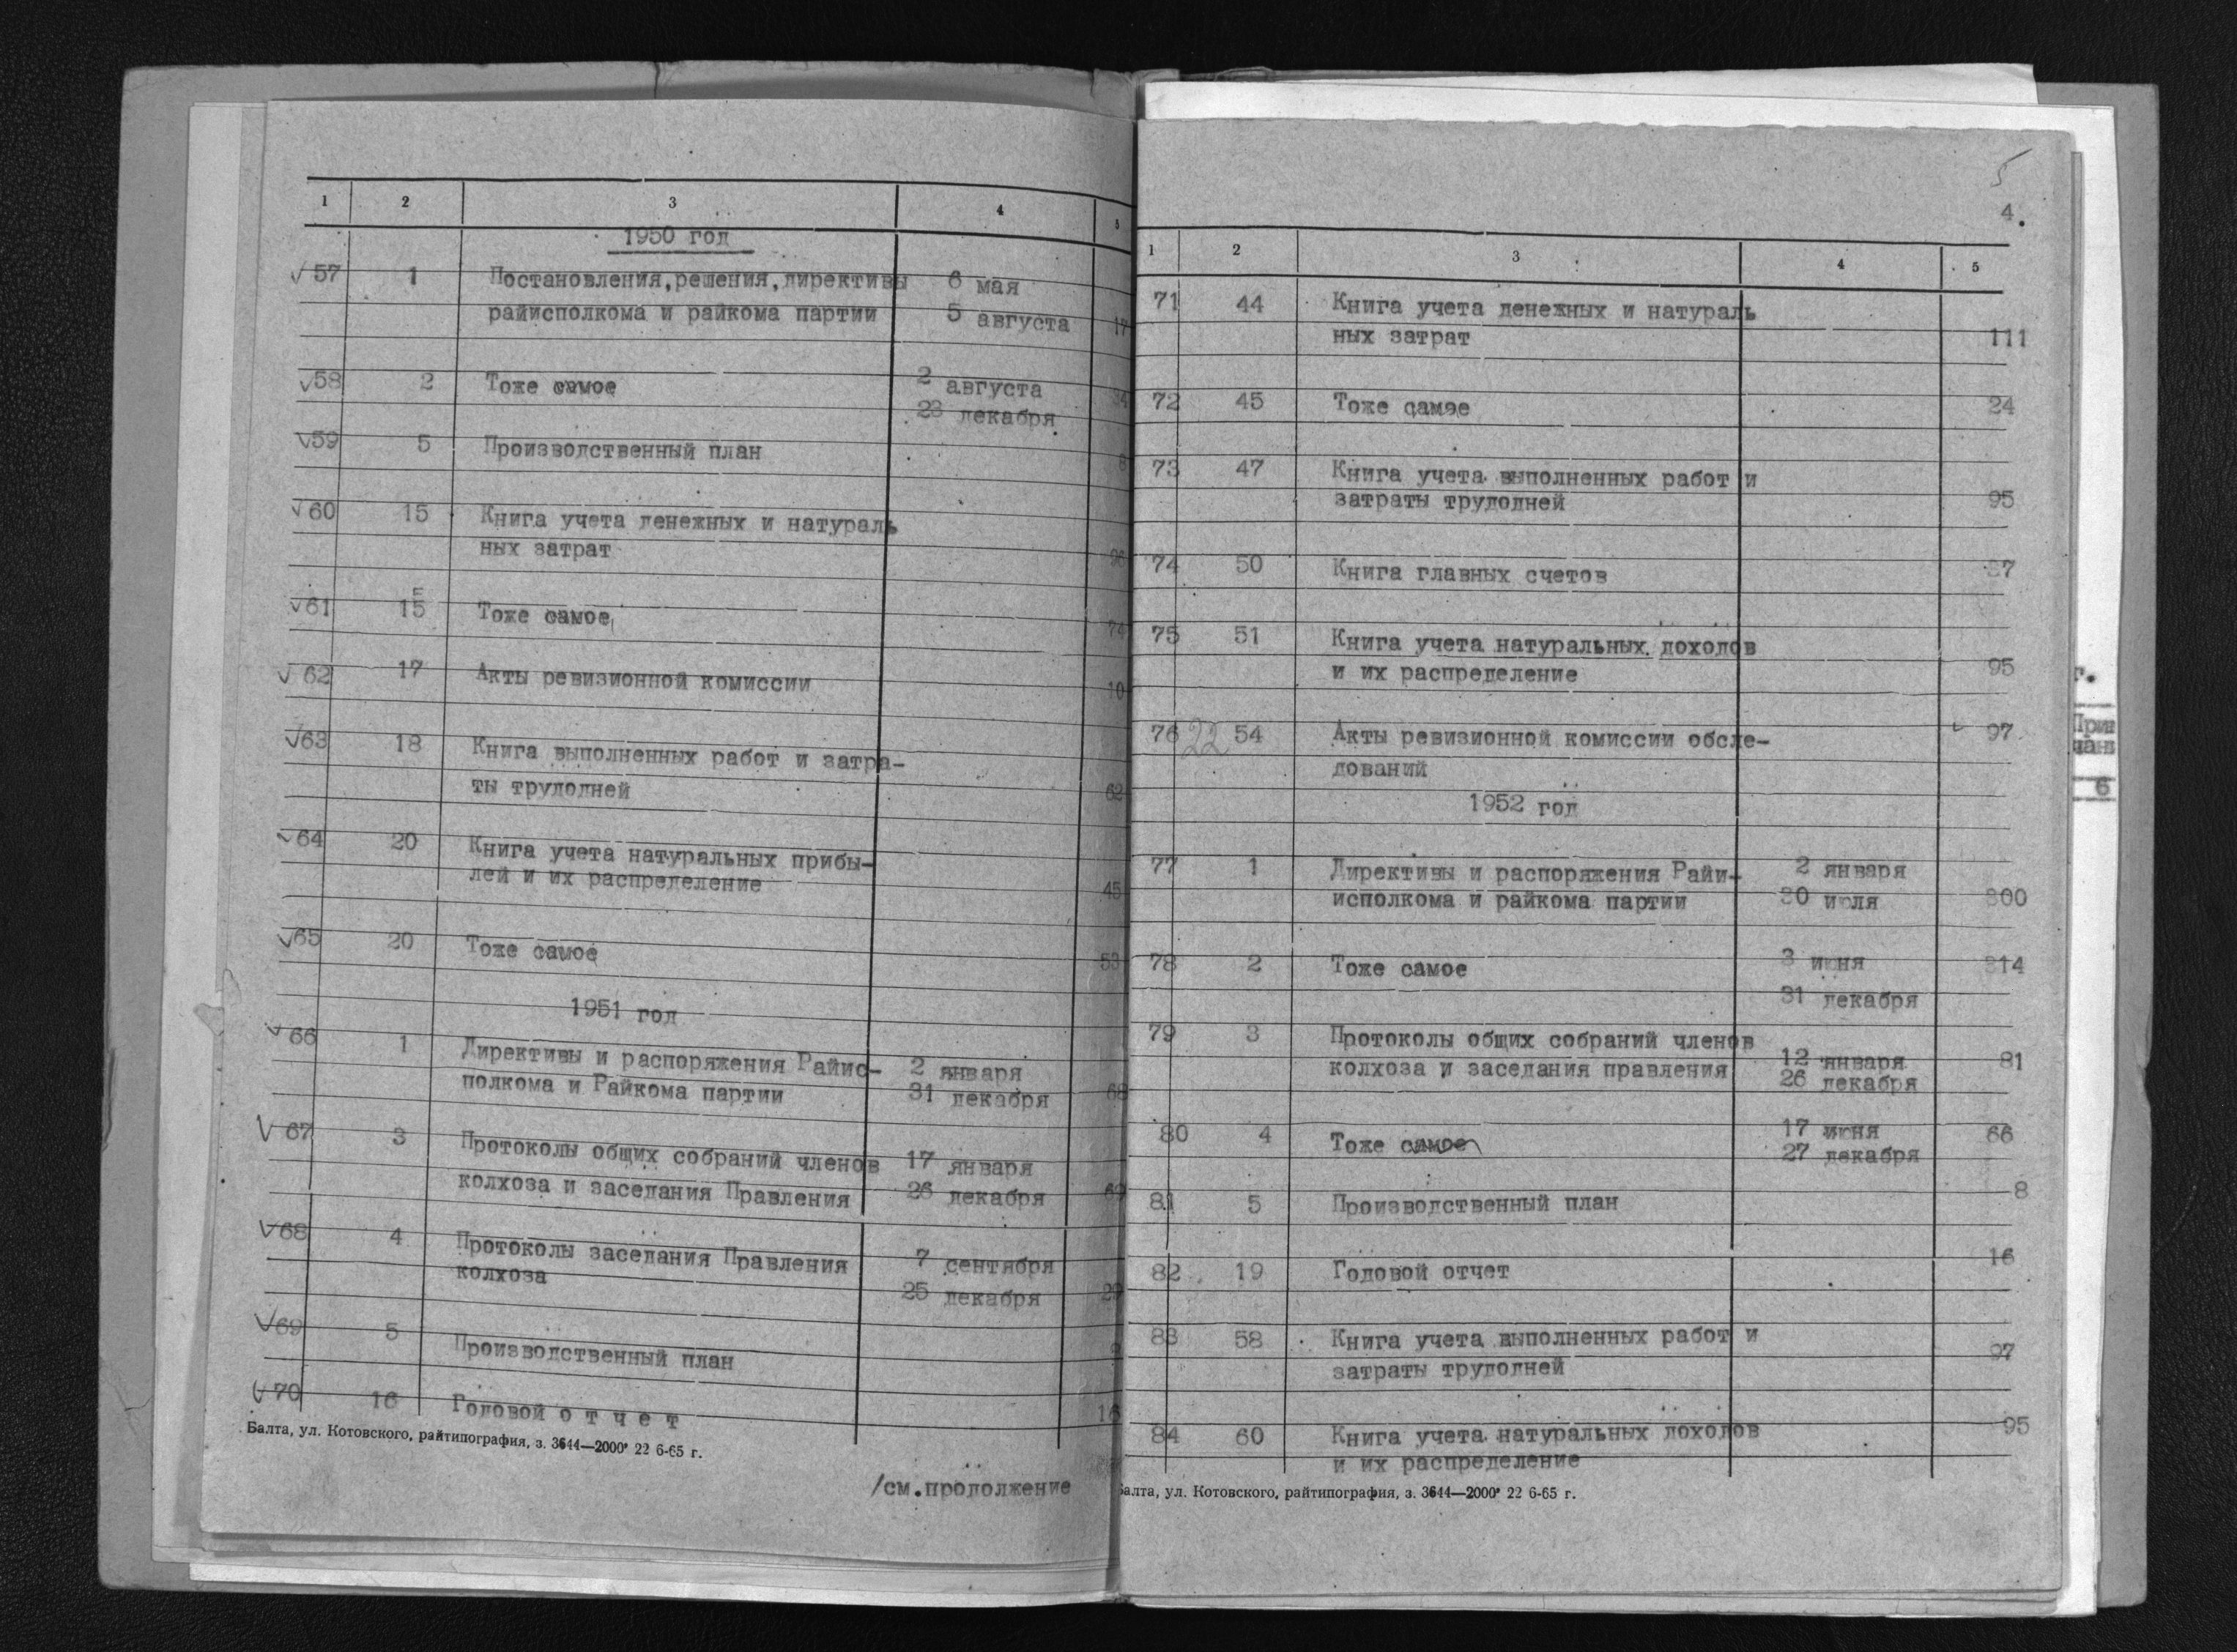 1 2 3 4 5
1950 год
57 1 Постановления,решения,директивы 6 мая
райисполкома и райкома партии 5 августа 17
58 2 Тоже самое 2 августа 34
23 декабря
59 5 Производственный план 8
60 15 Книга учета денежных и натураль
ных затрат 96
61 15 Тоже самое 74
62 17 Акты ревизионной комиссии 10
63 18 Книга выполненных работ и затра-
ты трудодней 62
64 20 Книга учета натуральных прибы-
лей и их распределение 45
65 20 Тоже самое 53
1951 год
66 1 Директивы и распоряжения Райис- 2 января
полкома и Райкома партии 31 декабря 68
67 3 Протоколы общих собраний членов 17 января
колхоза и заседания Правления 26 декабря
68 4 Протоколы заседания Правления 7 сентября
колхоза 25 декабря
69 5 Производственный план
70 16 Годовой о т ч е т 16
Балта, ул. Котовского, райтипография, з. 3644—2000 22 6-65 г.
/см.продолжение
5
4.
1 2 3 4 5
71 44 Книга учета денежных и натураль
ных затрат 111
72 45 Тоже самое 24
73 47 Книга учета выполненных работ и
затраты трудодней 95
74 50 Книга главных счетов
75 51 Книга учета натуральных доходов
и их распределение 95
76 22 54 Акты ревизионной комиссии обсле- 97
дований
1952 год
77 1 Директивы и распоряжения Райи- 2 января
исполкома и райкома партии 30 июля 300
78 2 Тоже самое 3 июня 314
31 декабря
79 3 Протоколы общих собраний членов
колхоза и заседания правления 12 января 81
26 декабря
80 4 Тоже самое 17 июня 66
27 декабря
81 5 Производственный план 8
82 19 Годовой отчет 16
83 58 Книга учета выполненных работ и
затраты трудодней 97
84 60 Книга учета натуральных доходов 95
и их распределение
Балта, ул. Котовского, райтипография, з. 3644—2000 22 6-65 г.
г.
6